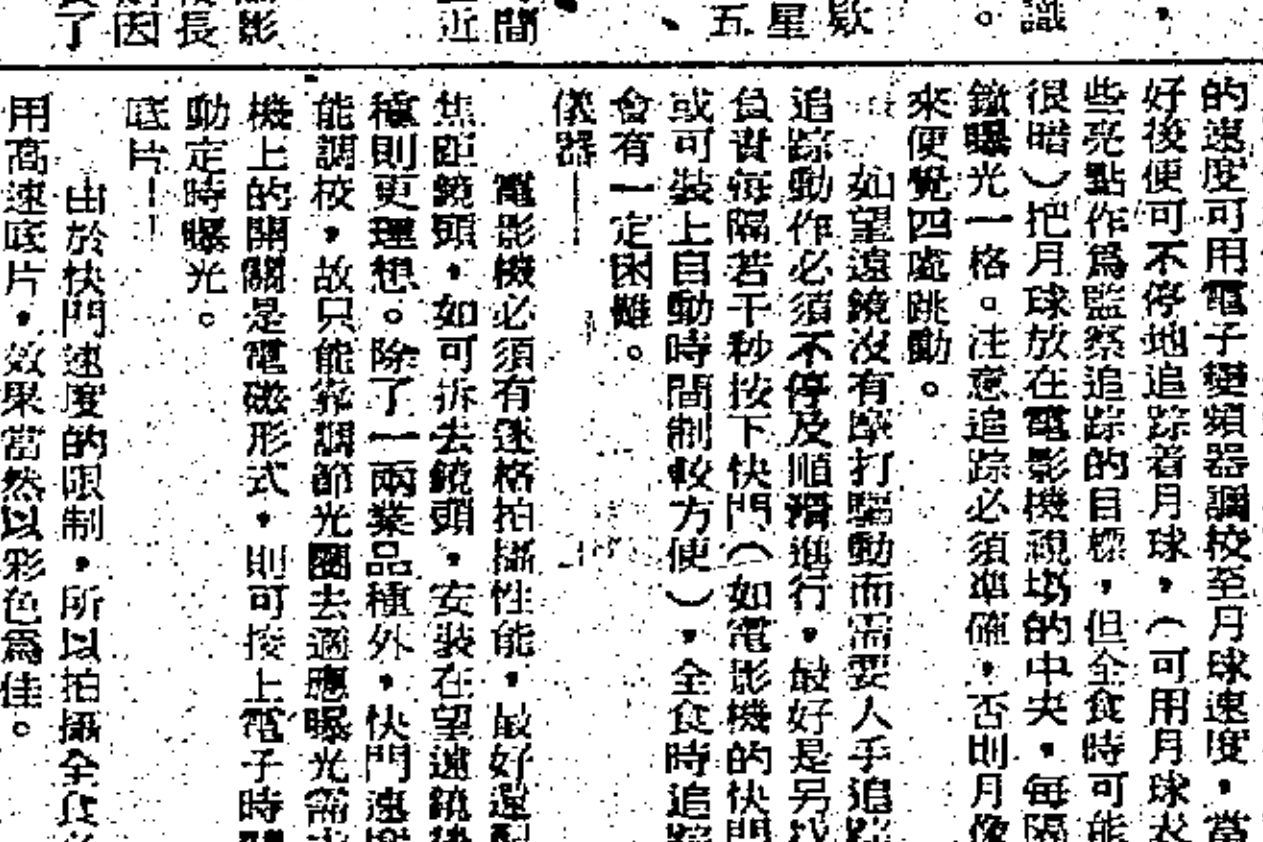 ，
識
。
歟
星
五
、
間
近
影
長
因
了
的速度可用電子變頻器調校至月球速度，當
好後便可不停地追踪着月球，（可用月球表
些亮點作爲監察追踪的目標，但全食時可能
很暗）把月球放在電影機視場的中央，每隔
鐘曝光一格。注意追踪必須準確，否則月像
來便覺四處跳動。
如望遠鏡沒有摩打驅動而需要人手追踪
追踪動作必須不停及順滑進行，最好是另找
負責每隔若干秒按下快門（如電影機的快門
或可裝上自動時間制較方便），全食時追踪
會有一定困難。
儀器——
電影機必須有逐格拍攝性能，最好還配
焦距鏡頭，如可拆去鏡頭，安裝在望遠鏡後
種則更理想。除了一兩業品種外，快門速度
能調校，故只能靠調節光圈去適應曝光需求
機上的開關是電磁形式，則可接上電子時
動定時曝光。
底片——
由於快門速度的限制，所以拍攝全食
用高速底片，效果當然以彩色爲佳。